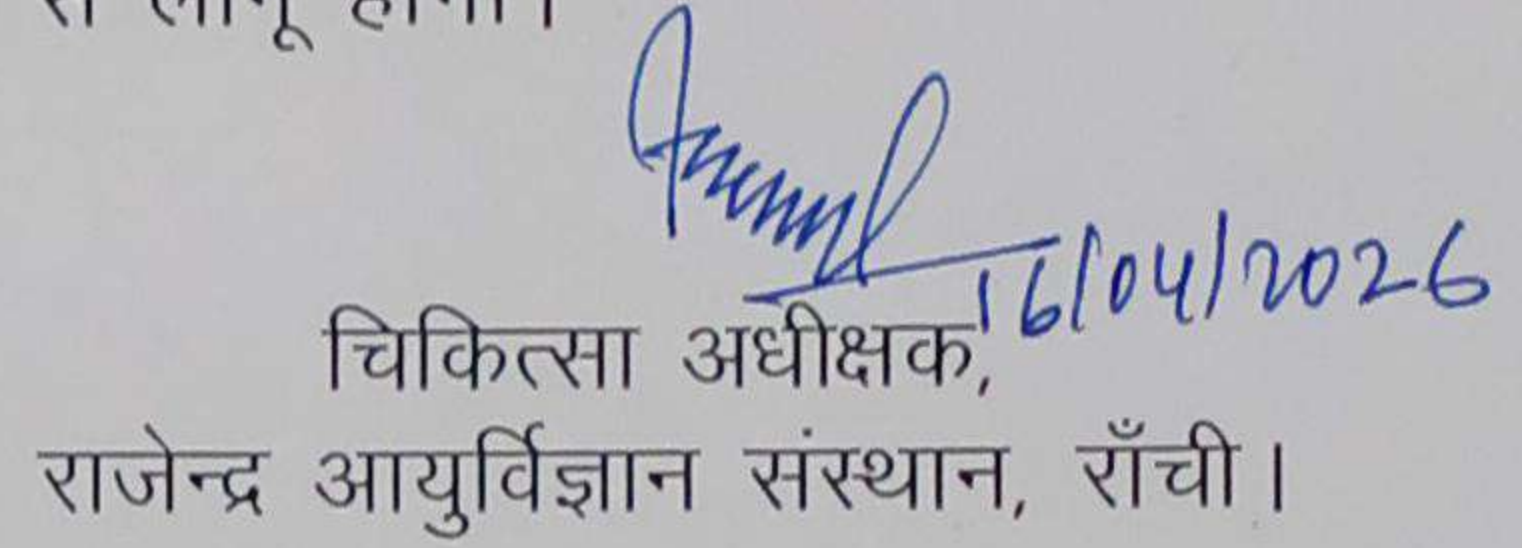 से लागू होगा।
16/04/2026
चिकित्सा अधीक्षक,
राजेन्द्र आयुर्विज्ञान संस्थान, राँची।